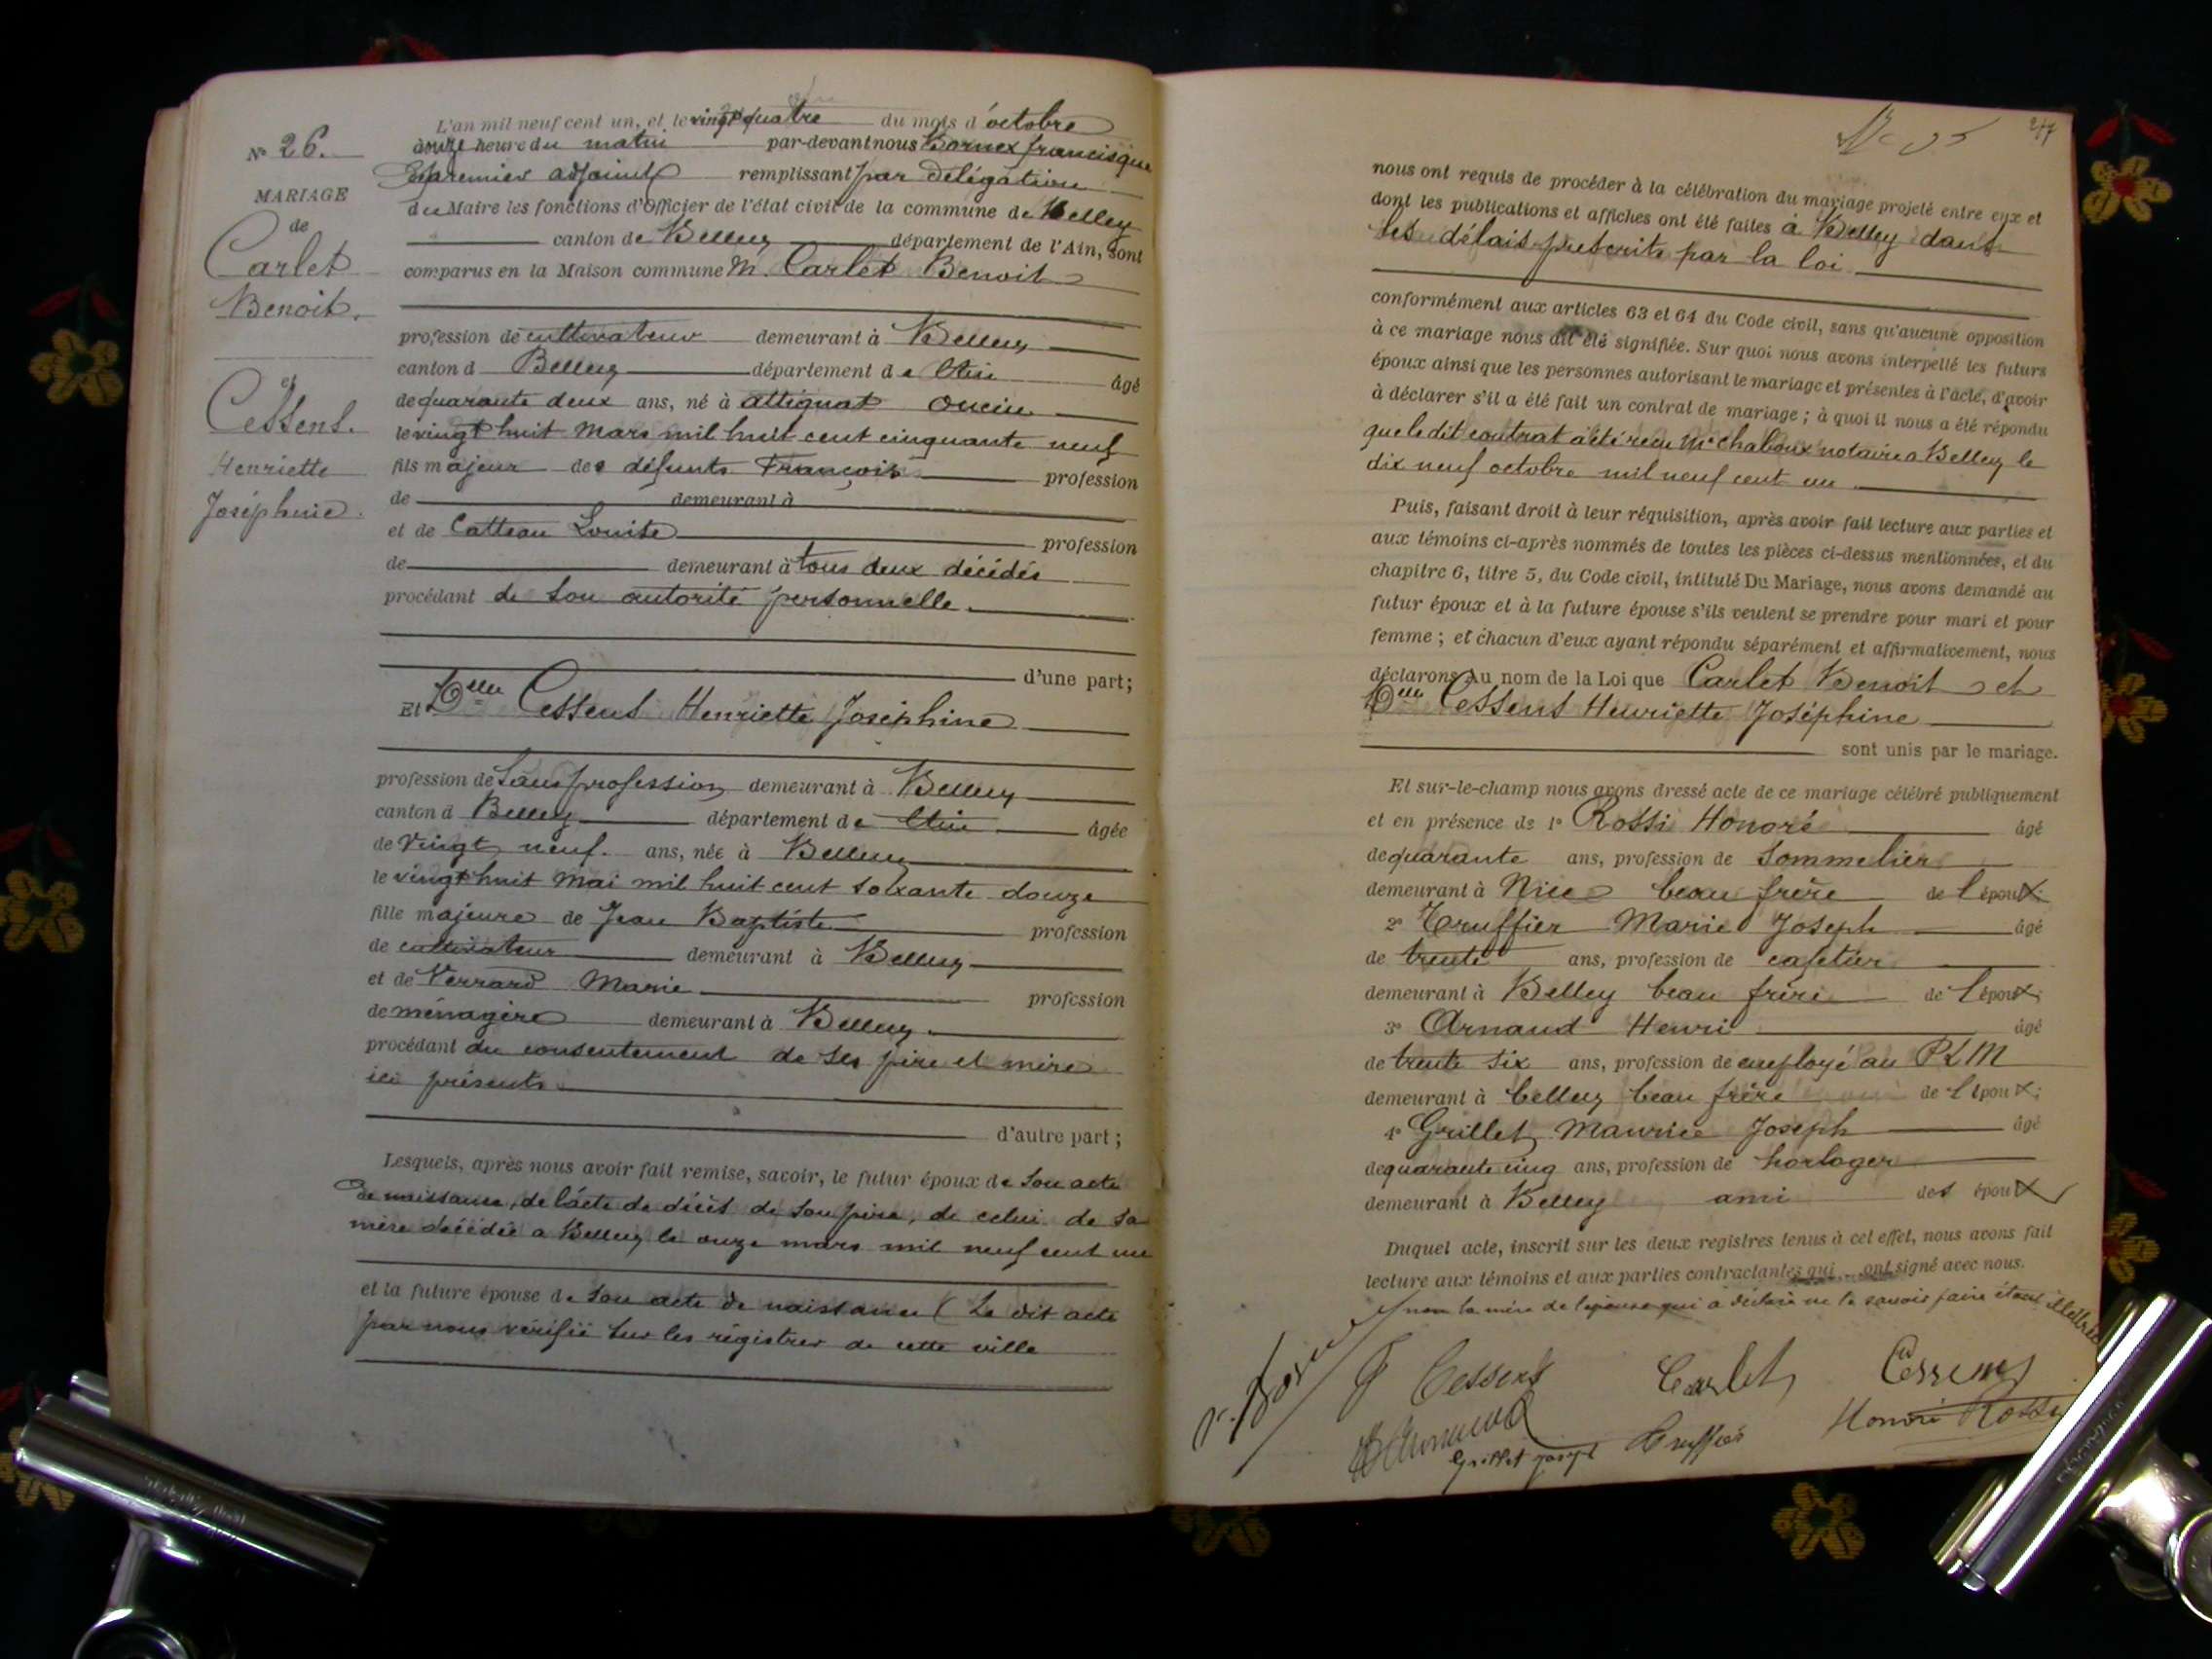 N° 26.
MARIAGE
de
Carlet
Benoit.
et
Cessens.
Henriette
Joséphine.
L'an mil neuf cent un, et le vingt quatre du mois d'octobre
heure du matin par-devant nous Bornex francisque
premier adjoint remplissant par délégation
du Maire les fonctions d'Officier de l'état civil de la commune de Belley
canton de Belley département de l'Ain, sont
comparus en la Maison commune M. Carlet Benoit
profession de cultivateur demeurant à Belley
canton d Belley département de l'Ain âgé
de quarante deux ans, né à attignat oncin
le vingt huit mars mil huit cent cinquante neuf
fils majeur des défunts François profession
de demeurant à
et de Catteau Louise profession
de demeurant à tous deux décédés
procédant de son autorité personnelle.
d'une part;
Et Delle Cessens Henriette Joséphine
profession de sans profession demeurant à Belley
canton d Belley département de l'Ain âgée
de vingt neuf. ans, née à Belley
le vingt huit mai mil huit cent soixante douze
fille majeure de Jean Baptiste profession
de cultivateur demeurant à Belley
et de Verrard Marie profession
de ménagère demeurant à Belley.
procédant du consentement de ses père et mère
ici présents.
d'autre part;
Lesquels, après nous avoir fait remise, savoir, le futur époux de son acte
de naissance, de l'acte de décès de son père, de celui de sa
mère décédée a Belley le onze mars mil neuf cent un
et la future épouse de son acte de naissance (Le dit acte
par nous vérifié sur les régistres de cette ville
247
nous ont requis de procéder à la célébration du mariage projeté entre eux et
dont les publications et affiches ont été faites à Belley dans
les délais prescrits par la loi
conformément aux articles 63 et 64 du Code civil, sans qu'aucune opposition
à ce mariage nous ait été signifiée. Sur quoi nous avons interpellé les futurs
époux ainsi que les personnes autorisant le mariage et présentes à l'acte, d'avoir
à déclarer s'il a été fait un contrat de mariage; à quoi il nous a été répondu
que le dit contrat a été reçu Me Chaboux notaire a Belley le
dix neuf octobre mil neuf cent un.
Puis, faisant droit à leur réquisition, après avoir fait lecture aux parties et
aux témoins ci-après nommés de toutes les pièces ci-dessus mentionnées, et du
chapitre 6, titre 5, du Code civil, intitulé Du Mariage, nous avons demandé au
futur époux et à la future épouse s'ils veulent se prendre pour mari et pour
femme; et chacun d'eux ayant répondu séparément et affirmativement, nous
déclarons Au nom de la Loi que Carlet Benoit et
Delle Cessens Henriette Joséphine
sont unis par le mariage.
Et sur-le-champ nous avons dressé acte de ce mariage célébré publiquement
et en présence de 1° Rossi Honoré âgé
de quarante ans, profession de sommelier
demeurant à Nice beau frère de l'époux;
2° Truffier Marie Joseph âgé
de trente ans, profession de cafetier
demeurant à Belley beau frère de l'époux;
3° Arnaud Henri âgé
de trente six ans, profession de employé au PLM
demeurant à belley beau frère de l'époux;
4° Grillet Maurice Joseph âgé
de quarante cinq ans, profession de horloger
demeurant à Belley ami des époux
Duquel acte, inscrit sur les deux registres tenus à cet effet, nous avons fait
lecture aux témoins et aux parties contractantes qui ont signé avec nous.
non la mère de l'épouse qui a déclaré ne le savoir faire étant illettrée
Cessens Carlet Cessens
Grillet Joseph Truffier Honoré Rossi